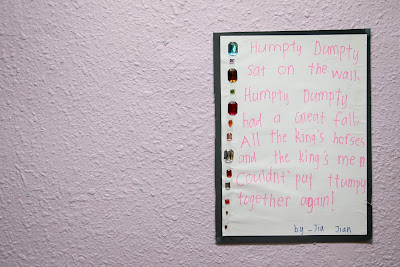 Humpty Dumpty
sat on the wall.
Humpty Dumpty
had a Great fall.
All the king's horses
and the king's men
Couldnt' put Humpty
together again!
by - Jia Jian